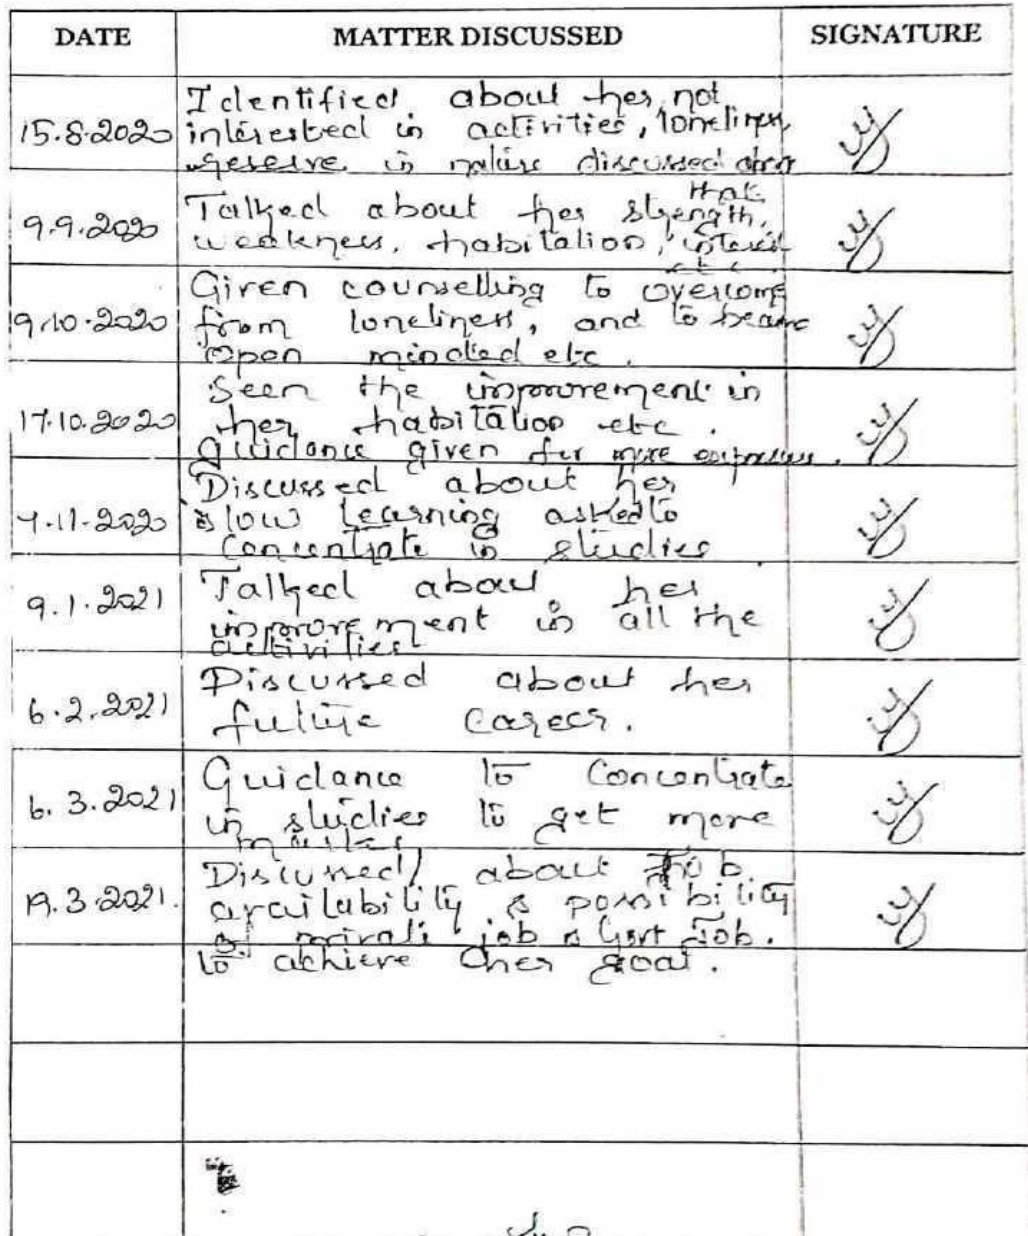 DATE MATTER DISCUSSED SIGNATURE
15.8.2020 Identified about her not
interested in activities, loneliness,
reserve in nature discussed about
that
9.9.2020 Talked about her strength,
weakness, habitation, interest
etc.
9.10.2020 Given counselling to overcome
from loneliness, and to became
open minded etc.
17.10.2020 Seen the improvement in
her habitation etc.
Guidance given for more
7.11.2020 Discussed about her
slow learning asked to
concentrate in studies
9.1.2021 Talked about her
improvement in all the
activities
6.2.2021 Discussed about her
future career.
6.3.2021 Guidance to concentrate
in studies to get more
marks
19.3.2021. Discussed about Job
availability & possibility
of private job & Govt Job.
to achieve her goal.